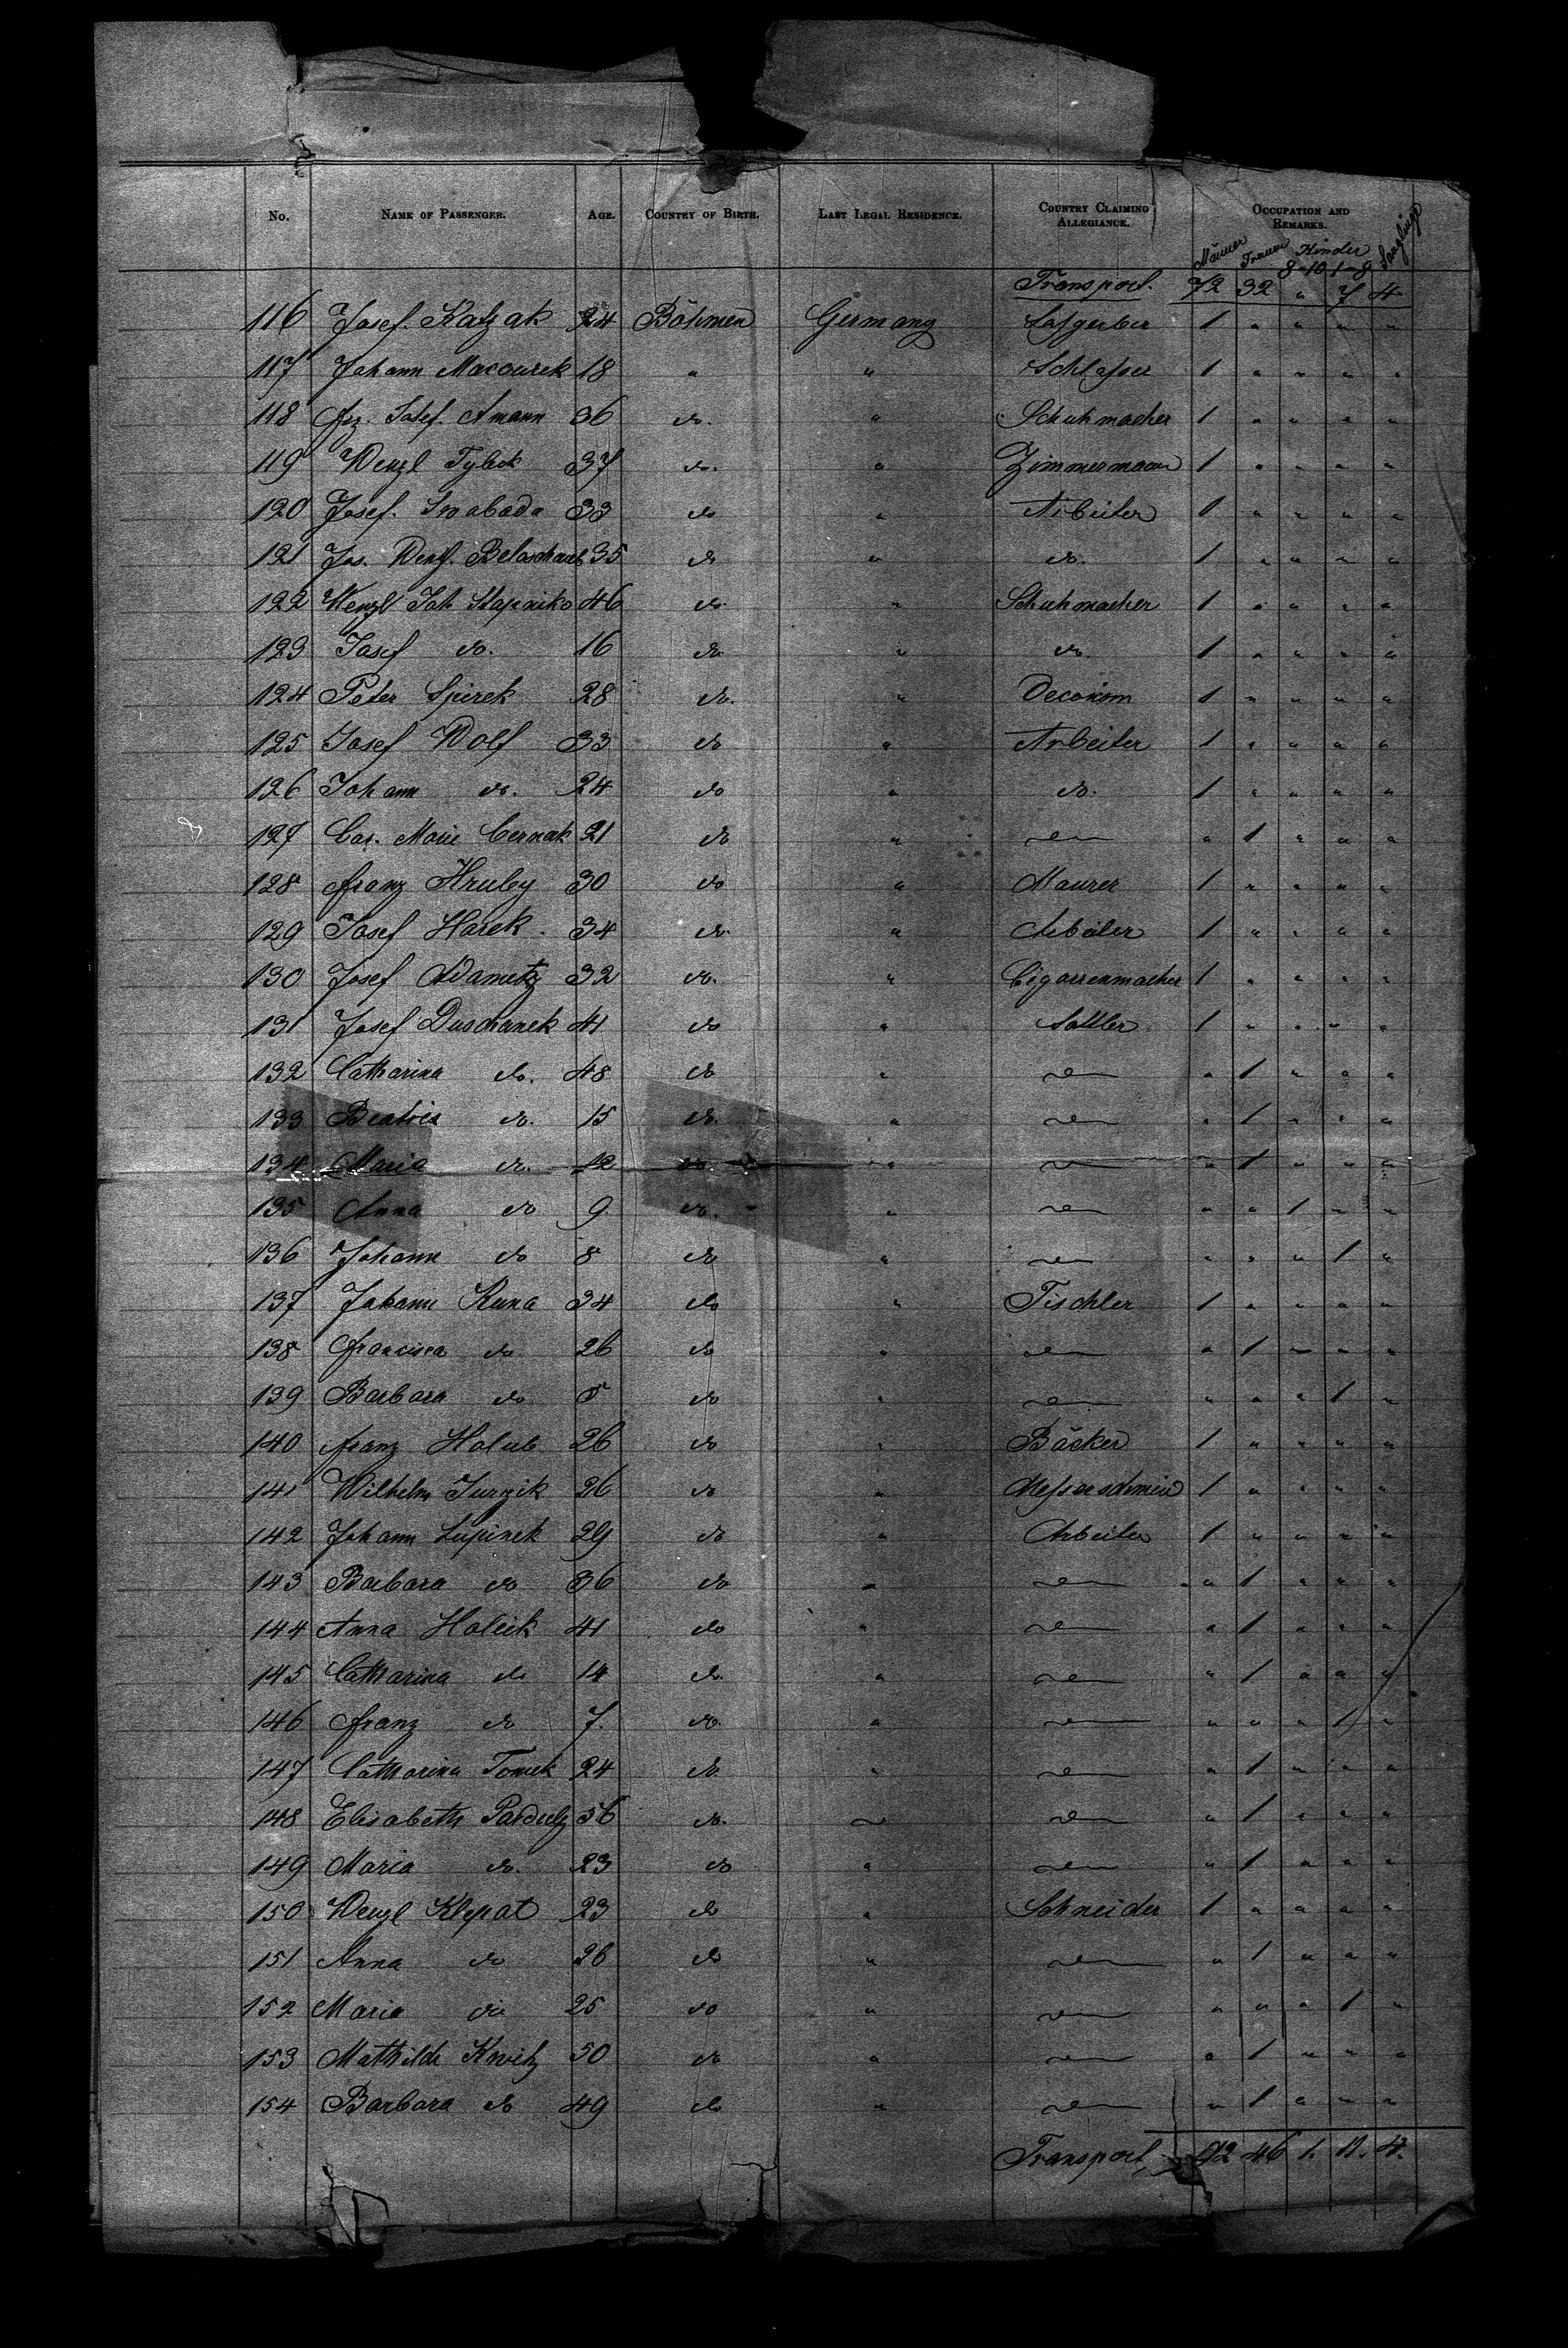 No. NAME OF PASSENGER. AGE. COUNTRY OF BIRTH. LAST LEGAL RESIDENCE. COUNTRY CLAIMING ALLEGIANCE. OCCUPATION AND REMARKS.
Männer Frauen Kinder 8-10 1-8 Säuglinge
Transport. 72 32 " 7 4
116 Josef Katzak 24 Böhmen Germany Lohgerber 1 " " " "
117 Johann Macourek 18 " " Schlosser 1 " " " "
118 Frz. Josef Amann 36 do. " Schuhmacher 1 " " " "
119 Wenzl 37 do. " Zimmermann 1 " " " "
120 Josef Swaboda 33 do " Arbeiter 1 " " " "
121 Jos. Wenz. 35 do " do. 1 " " " "
122 Wenzl Joh 46 do. " Schuhmacher 1 " " " "
123 Josef do. 16 do. " do. 1 " " " "
124 Peter Spirek 28 do. " Oeconom 1 " " " "
125 Josef Wolf 33 do " Arbeiter 1 " " " "
126 Johann do. 24 do " do. 1 " " " "
127 Car. Marie Cernak 21 do " " 1 " " "
128 Franz Hruby 30 do " Maurer 1 " " " "
129 Josef Harek 34 do " Arbeiter 1 " " " "
130 Josef Adametz 32 do. " Cigarrenmacher 1 " " " "
131 Josef Duschanek 41 do " Sattler 1 " " " "
132 Catharina do. 48 do " " 1 " " "
133 Beatrix do. 15 do. " " 1 " " "
134 Maria do. 12 do. " " 1 " " "
135 Anna do 9 do. " " " 1 " "
136 Johann do 8 do " " " " 1 "
137 Johann Kuna 34 do " Tischler 1 " " " "
138 Francisca do 26 do " " 1 " " "
139 Barbara do 5 do " " " " 1 "
140 Franz Holub 26 do " Bäcker 1 " " " "
141 Wilhelm Jurzik 26 do " Messerschmied 1 " " " "
142 Johann Lupinek 29 do " Arbeiter 1 " " " "
143 Barbara do 36 do " " 1 " " "
144 Anna Holeik 41 do " " 1 " " "
145 Catharina do 14 do. " " 1 " " "
146 Franz do 7. do. " " " " 1 "
147 Catharina Tomek 24 do. " " 1 " " "
148 Elisabeth 56 do. " 1 " " "
149 Maria do. 23 do " " 1 " " "
150 Wenzl Klepat 23 do " Schneider 1 " " " "
151 Anna do 26 do " " 1 " " "
152 Maria do 25 do " " " " 1 "
153 Mathilde 50 do " " 1 " " "
154 Barbara do 49 do " " 1 " " "
Transport 92 46 1. 11. 4.